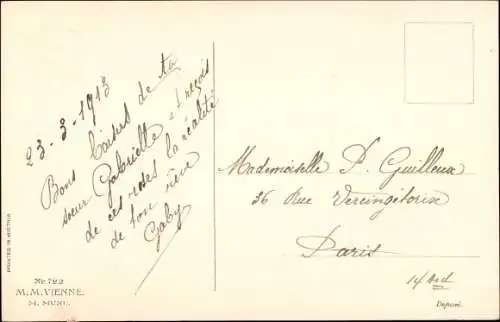 23-3-1913
Bons baisers de ta
sœur Gabrielle & reçois
de ces roses la réalité
de ton rêve
Gaby
Mademoiselle P. Guilleux
36 Rue Vercingétorix
Paris
14 Bd
Déposé.
PRINTED IN AUSTRIA
Nr. 722
M. M. VIENNE.
M. MUNK.